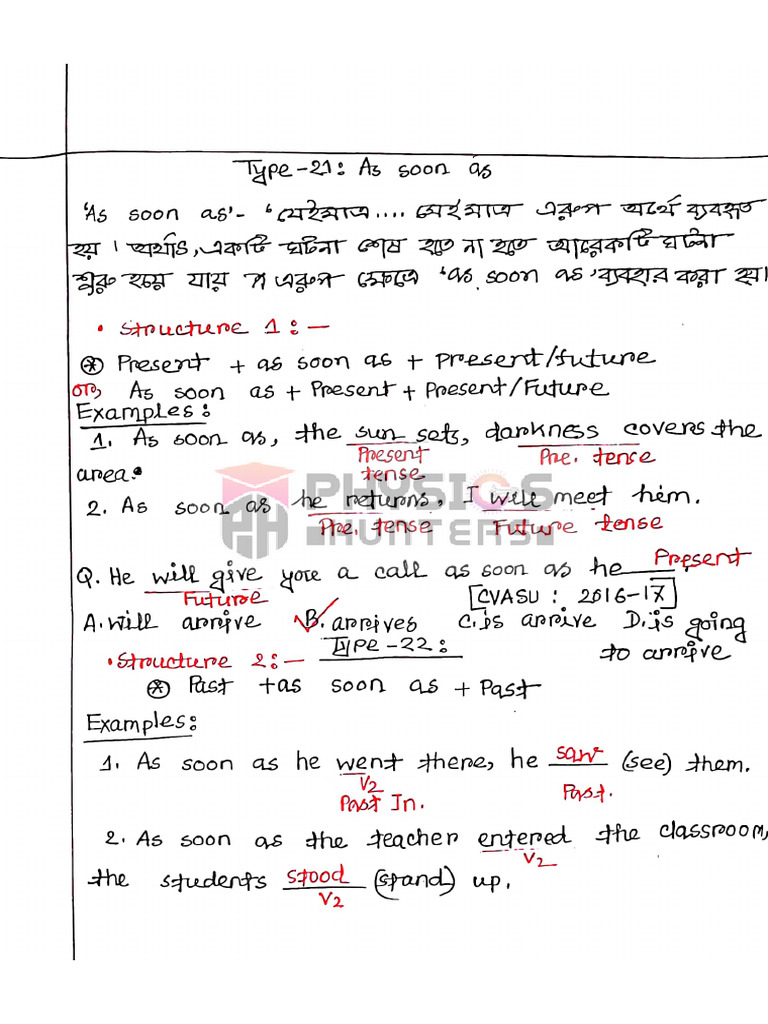 Type-21: As soon as
'As soon as'- 'যেইমাত্র.... সেইমাত্র এরূপ অর্থে ব্যবহৃত
হয়। অর্থাৎ, একটি ঘটনা শেষ হতে না হতে আরেকটি ঘটনা
শুরু হয়ে যায় এরূপ ক্ষেত্রে 'as soon as' ব্যবহার করা হয়।
• Structure 1:-
⊛ Present + as soon as + present/future
As soon as + Present + Present/Future
Examples:
1. As soon as, the sun sets, darkness covers the
Present tense
Pre. tense
area.
2. As soon as he returns, I will meet him.
Pre. tense
Future tense
PHYSICS
HUNTERS
Q. He will give you a call as soon as he ____.
Future
Present
[CVASU: 2016-17]
A. will arrive B. arrives C. is arrive D. is going
to arrive
Type-22:
• Structure 2:-
⊛ Past + as soon as + Past
Examples:
1. As soon as he went there, he saw (see) them.
V2
Past In.
Past.
2. As soon as the teacher entered the classroom,
V2
the students stood (stand) up.
V2